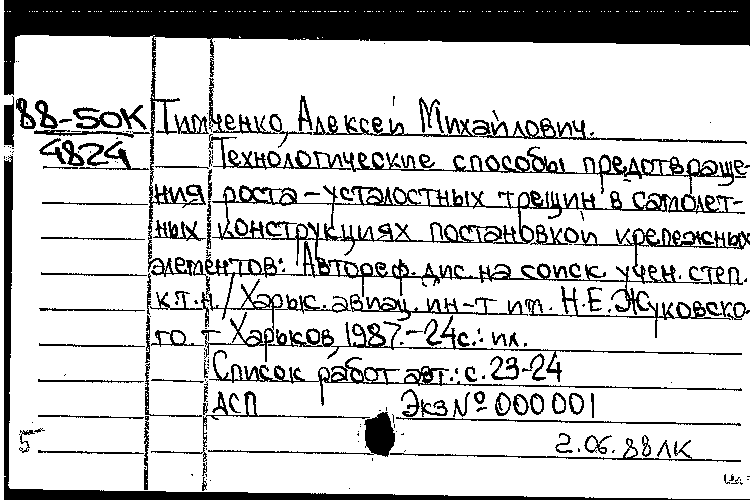 88-50К Тимченко, Алексей Михайлович.
4824 Технологические способы предотвраще-
ния роста - усталостных трещин в самолет-
ных конструкциях постановкой крепежных
элементов: Автореф. дис. на соиск. учен. степ.
к.т.н. / Харьк. авиац. ин-т им. Н.Е. Жуковско-
го. - Харьков, 1987. - 24 с.: ил.
Список работ авт.: с. 23-24
ДСП Экз № 000001
5 2.06.88 ЛК